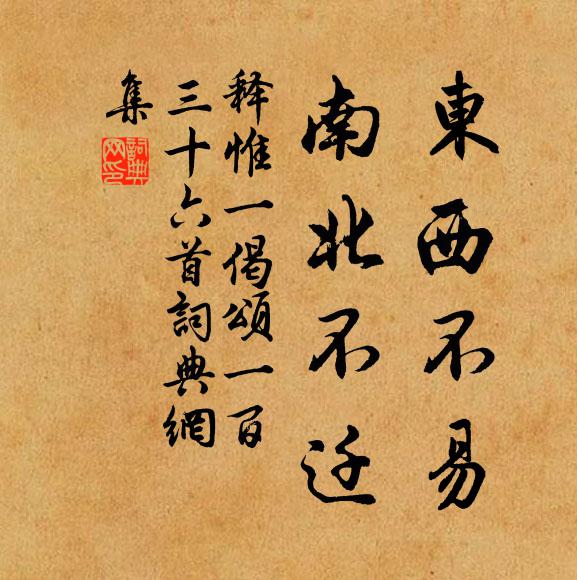 東西不易
南北不迁
释惟一偈頌一百
三十六首詞典網
集
詞典
网印